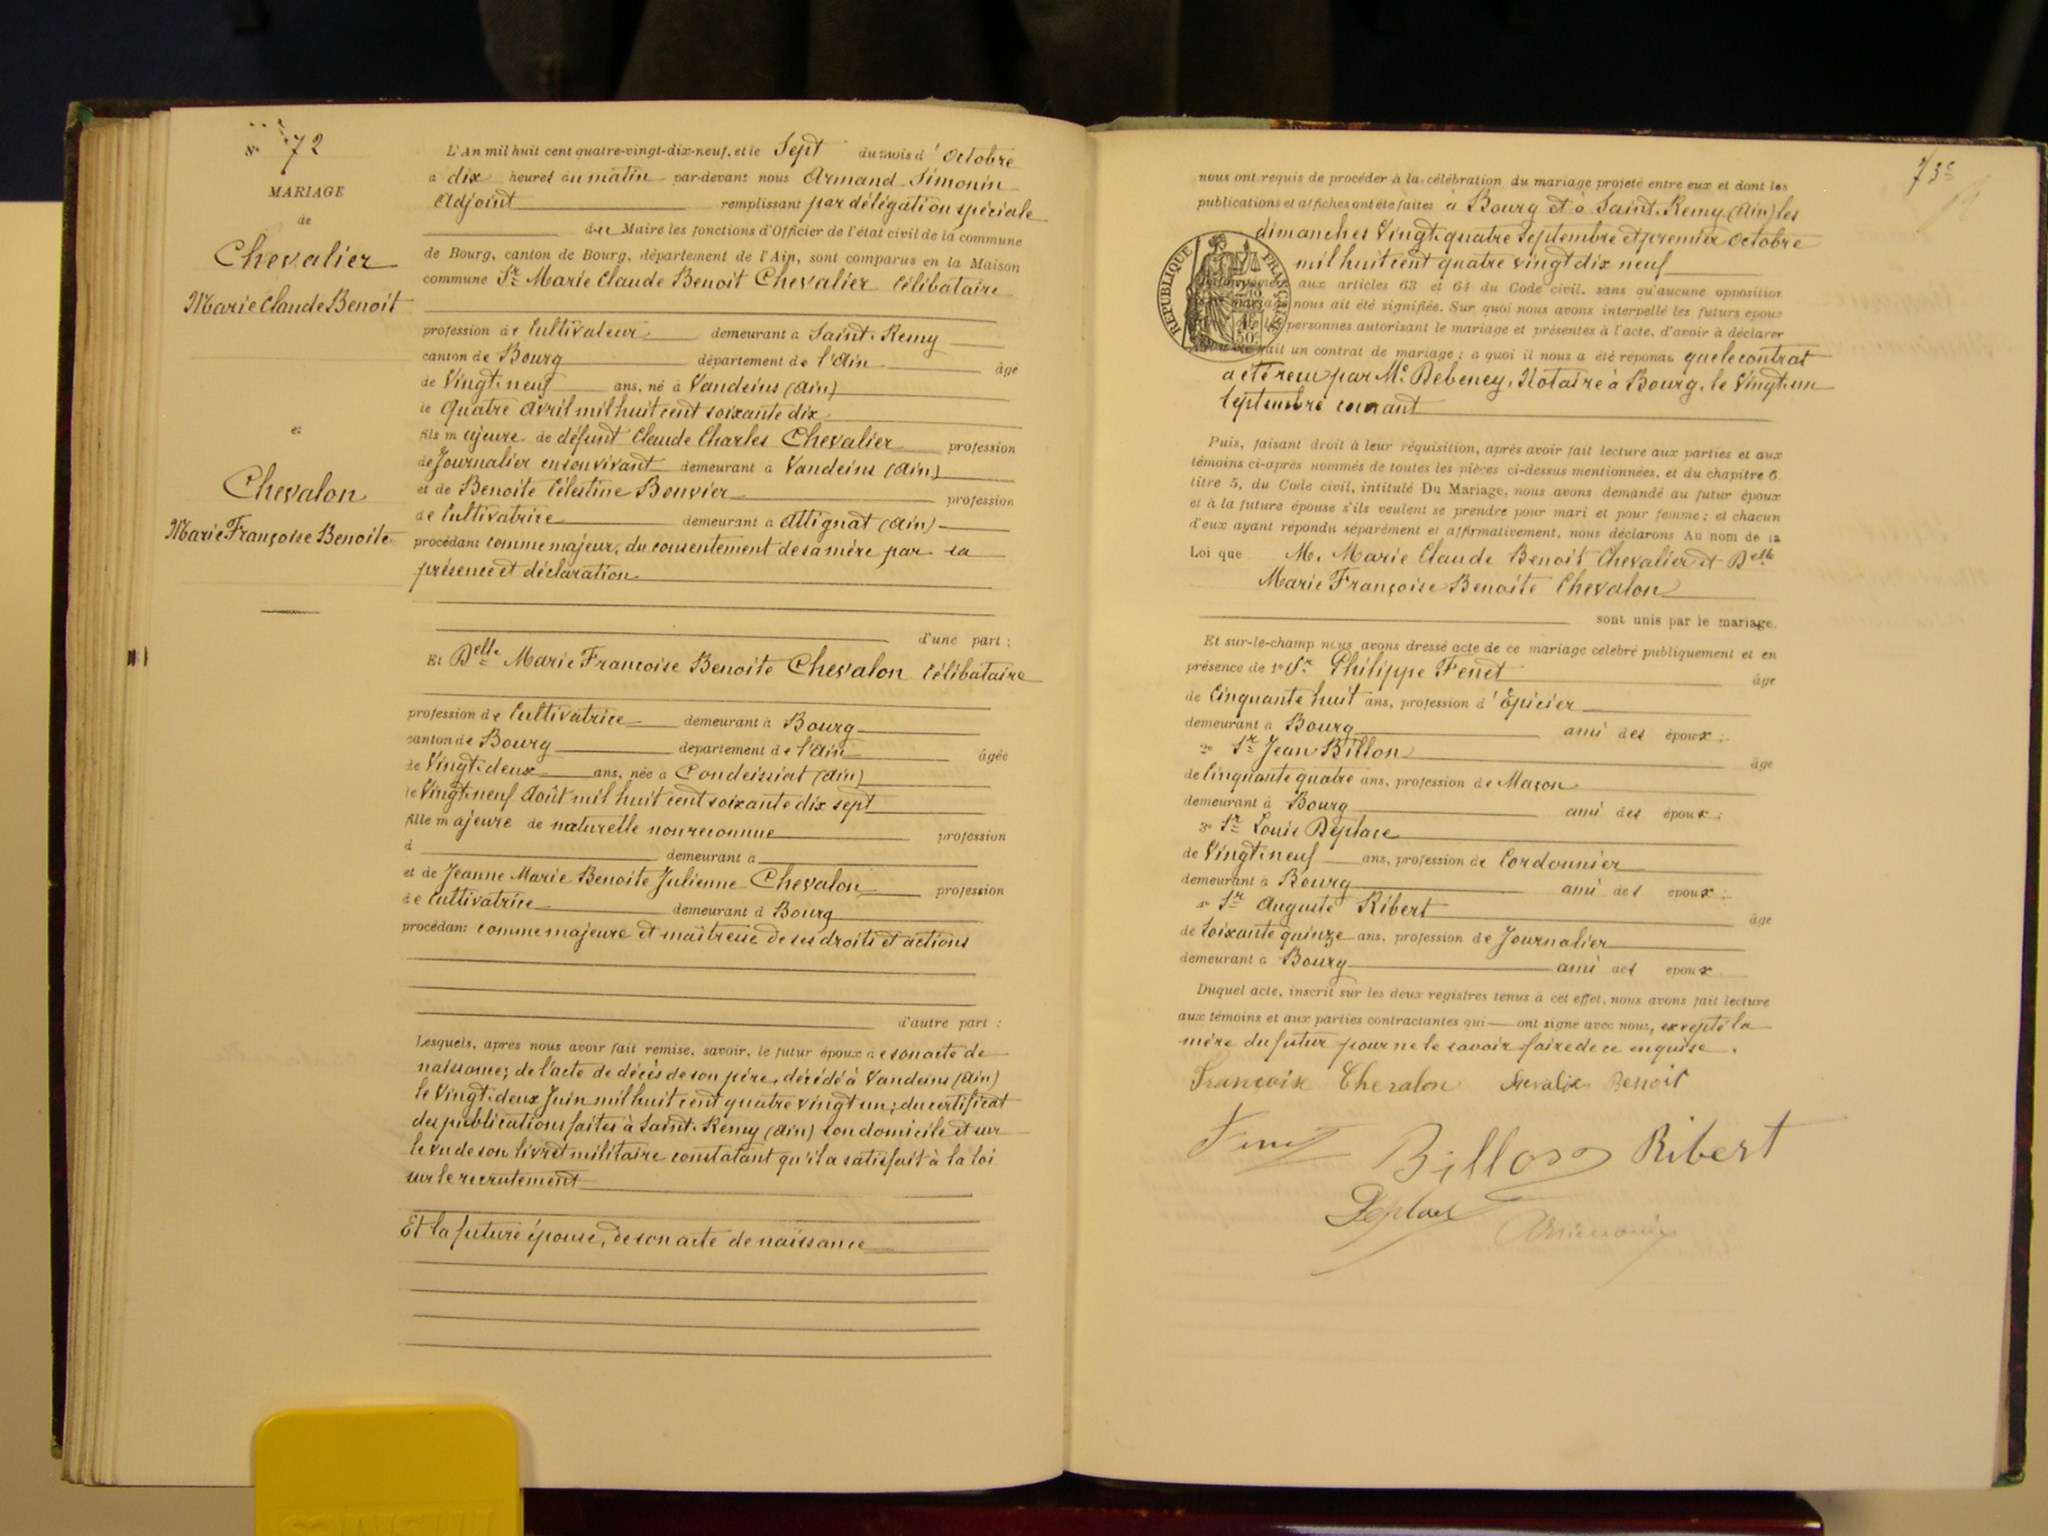 N° 72
MARIAGE
de
Chevalier
Marie Claude Benoit
et
Chevalon
Marie Françoise Benoite
L'An mil huit cent quatre-vingt-dix-neuf, et le Sept du mois d'Octobre
à dix heures du matin par-devant nous Armand Simonin
Adjoint remplissant par délégation spéciale
du Maire les fonctions d'Officier de l'état civil de la commune
de Bourg, canton de Bourg, département de l'Ain, sont comparus en la Maison
commune Sr Marie Claude Benoit Chevalier Célibataire
profession de Cultivateur demeurant à Saint-Remy
canton de Bourg département de l'Ain âgé
de Vingt-neuf ans, né à Vandeins (Ain)
le quatre Avril mil huit cent soixante dix
fils majeur de défunt Claude Charles Chevalier profession
de Journalier en son vivant demeurant à Vandeins (Ain)
et de Benoite Célestine Bouvier profession
de Cultivatrice demeurant à Attignat (Ain)
procédant comme majeur, du consentement de sa mère par sa
présence et déclaration
d'une part :
Et Delle Marie Françoise Benoite Chevalon Célibataire
profession de Cultivatrice demeurant à Bourg
canton de Bourg département de l'Ain âgée
de Vingt-deux ans, née à Condeissiat (Ain)
le Vingt-neuf Août mil huit cent soixante dix sept
fille majeure de naturelle non reconnue profession
d demeurant à
et de Jeanne Marie Benoite Julienne Chevalon profession
de Cultivatrice demeurant à Bourg
procédant comme majeure et maîtresse de ses droits et actions
d'autre part :
Lesquels, après nous avoir fait remise, savoir, le futur époux de son acte de
naissance; de l'acte de décès de son père, décédé à Vandeins (Ain)
le Vingt-deux Juin mil huit cent quatre vingt un; du certificat
des publications faites à Saint-Remy (Ain) son domicile et sur
le vu de son livret militaire constatant qu'il a satisfait à la loi
sur le recrutement
Et la future épouse, de son acte de naissance
73
nous ont requis de procéder à la célébration du mariage projeté entre eux et dont les
publications et affiches ont été faites à Bourg et à Saint-Remy (Ain) les
dimanches Vingt-quatre Septembre et premier Octobre
mil huit cent quatre vingt dix neuf
RÉPUBLIQUE FRANÇAISE
aux articles 63 et 64 du Code civil, sans qu'aucune opposition
nous ait été signifiée. Sur quoi nous avons interpellé les futurs époux
personnes autorisant le mariage et présentes à l'acte, d'avoir à déclarer
fait un contrat de mariage ; à quoi il nous a été répondu que le contrat
a été reçu par Me. Debeney, Notaire à Bourg, le Vingt-un
Septembre courant
Puis, faisant droit à leur réquisition, après avoir fait lecture aux parties et aux
témoins ci-après nommés de toutes les pièces ci-dessus mentionnées, et du chapitre 6
titre 5, du Code civil, intitulé Du Mariage, nous avons demandé au futur époux
et à la future épouse s'ils veulent se prendre pour mari et pour femme ; et chacun
d'eux ayant répondu séparément et affirmativement, nous déclarons Au nom de la
Loi que M. Marie Claude Benoit Chevalier et Delle
Marie Françoise Benoite Chevalon
sont unis par le mariage.
Et sur-le-champ nous avons dressé acte de ce mariage célébré publiquement et en
présence de 1° Sr Philippe Fenet âgé
de Cinquante huit ans, profession d'Epicier
demeurant à Bourg ami des époux ;
2° Sr Jean Billon âgé
de Cinquante quatre ans, profession de Maçon
demeurant à Bourg ami des époux ;
3° Sr Louis Deplace
de Vingt-neuf ans, profession de Cordonnier
demeurant à Bourg ami des époux ;
4° Sr Auguste Ribert âgé
de Soixante quinze ans, profession de Journalier
demeurant à Bourg ami des époux
Duquel acte, inscrit sur les deux registres tenus à cet effet, nous avons fait lecture
aux témoins et aux parties contractantes qui ont signé avec nous, excepté la
mère du futur pour ne le savoir faire de ce enquise.
Françoise Chevalon Chevalier Benoit
Fenet Billon Ribert
Deplace
ASimonin